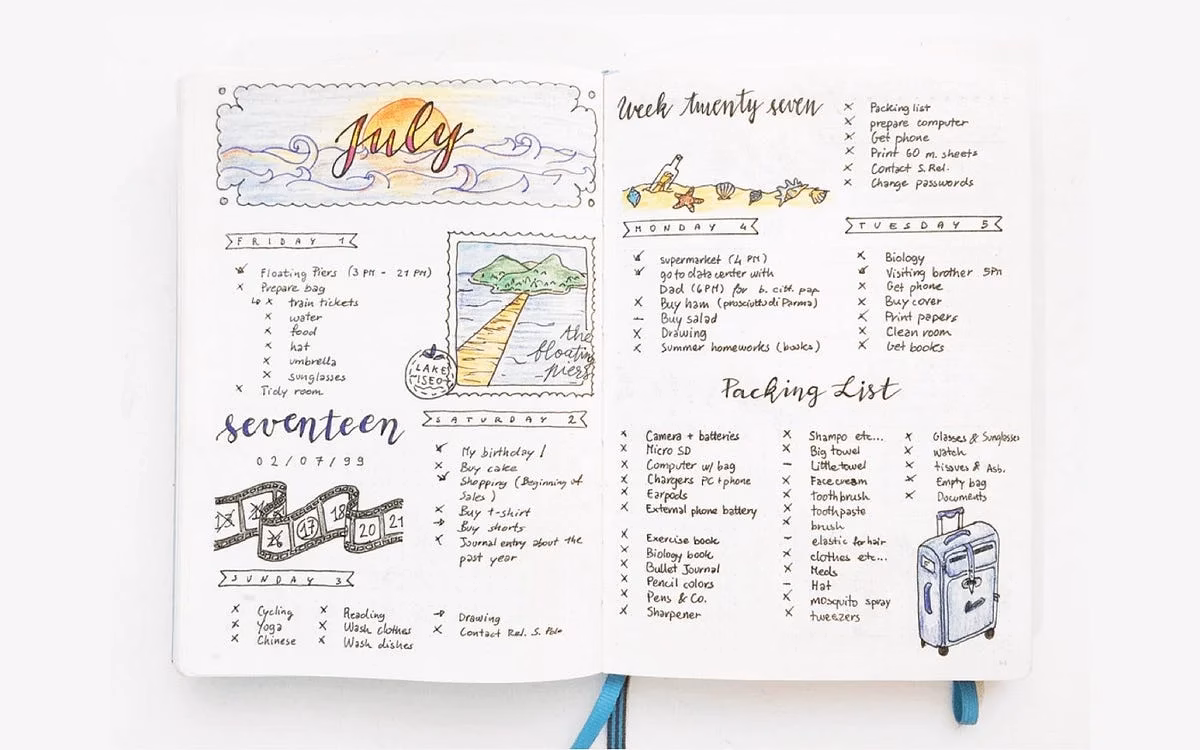 July
FRIDAY 1
Floating Piers (3 PM - 21 PM)
Prepare bag
train tickets
water
food
hat
umbrella
sunglasses
Tidy room
the
floating
piers
LAKE
ISEO
seventeen
02/07/99
15 16 17 18 20 21
SATURDAY 2
My birthday!
Buy cake
Shopping (Beginning of
Sales)
Buy t-shirt
Buy shorts
Journal entry about the
past year
SUNDAY 3
Cycling
Yoga
Chinese
Reading
Wash clothes
Wash dishes
Drawing
Contact Rel. S. Polo
Week twenty seven
Packing list
prepare computer
Get phone
Print 60 m. sheets
Contact S. Rel.
Change passwords
MONDAY 4
supermarket (4 PM)
go to data center with
Dad (6PM) for b. citt. pap.
Buy ham (prosciutto di Parma)
Buy salad
Drawing
Summer homeworks (books)
TUESDAY 5
Biology
Visiting brother 5PM
Get phone
Buy cover
Print papers
Clean room
Get books
Packing List
Camera + batteries
Micro SD
Computer w/ bag
Chargers PC + phone
Earpods
External phone battery
Exercise book
Biology book
Bullet Journal
Pencil colors
Pens & Co.
Sharpener
Shampo etc...
Big towel
Little towel
Face cream
toothbrush
toothpaste
brush
elastic for hair
clothes etc...
Meds
Hat
mosquito spray
tweezers
Glasses & Sunglasses
watch
tissues & Asb.
Empty bag
Documents